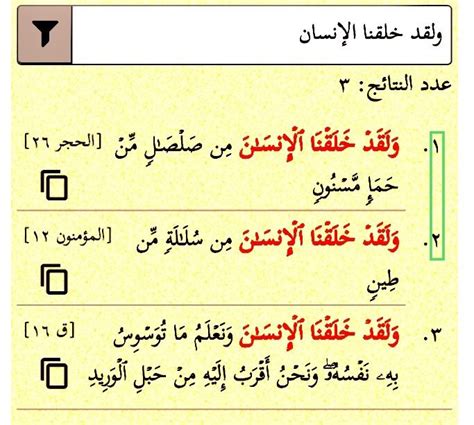 ولقد خلقنا الإنسان
عدد النتائج: ٣
١. وَلَقَدْ خَلَقْنَا ٱلْإِنسَـٰنَ مِن صَلْصَـٰلٍ مِّنْ [الحجر ٢٦]
حَمَإٍ مَّسْنُونٍ
٢. وَلَقَدْ خَلَقْنَا ٱلْإِنسَـٰنَ مِن سُلَـٰلَةٍ مِّن [المؤمنون ١٢]
طِينٍ
٣. وَلَقَدْ خَلَقْنَا ٱلْإِنسَـٰنَ وَنَعْلَمُ مَا تُوَسْوِسُ [ق ١٦]
بِهِۦ نَفْسُهُۥ ۖ وَنَحْنُ أَقْرَبُ إِلَيْهِ مِنْ حَبْلِ ٱلْوَرِيدِ